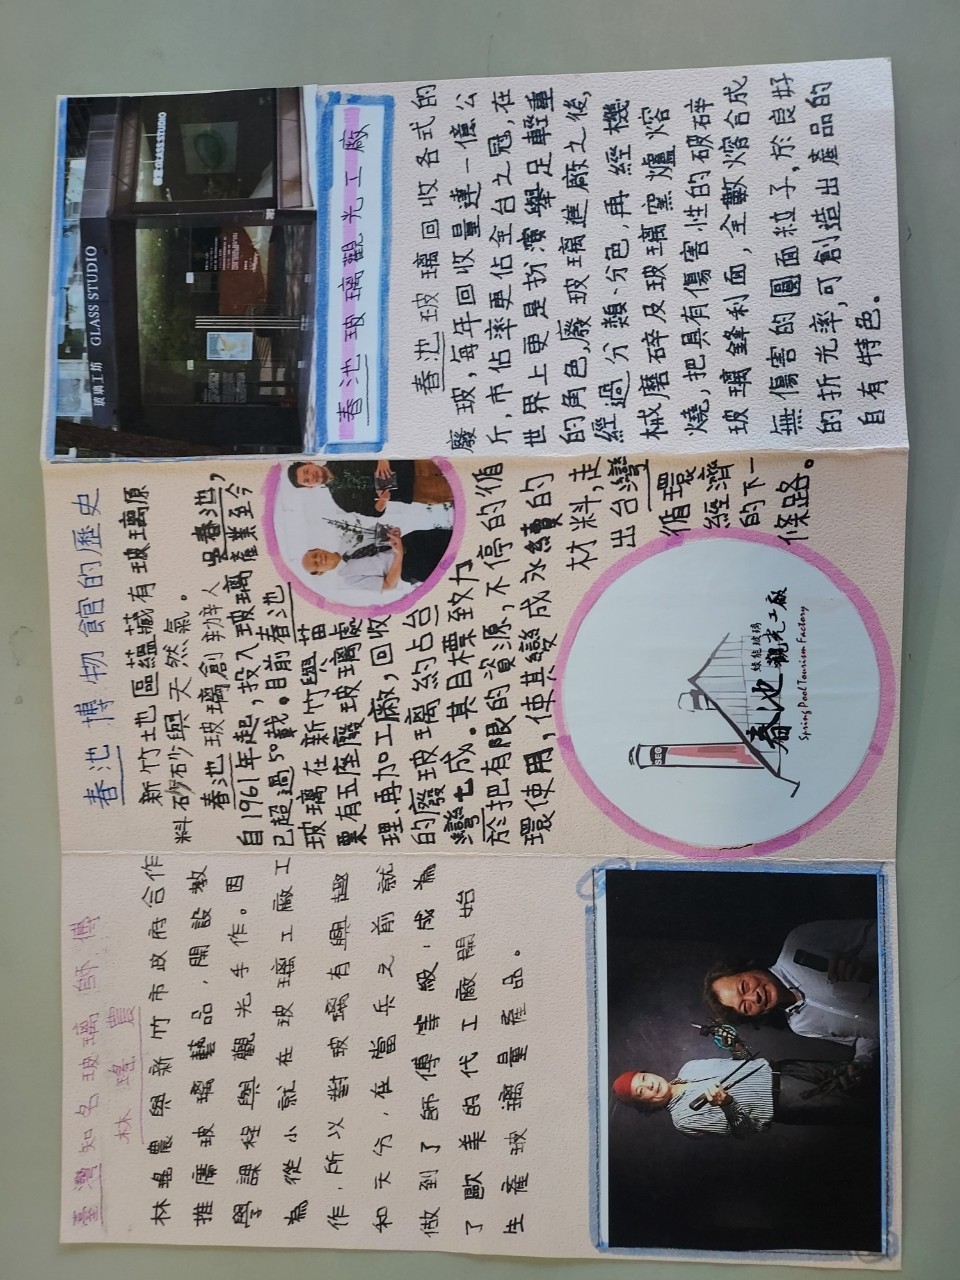 臺灣知名玻璃師傅
林瑤農
林瑤農與新竹市政府合作
推廣玻璃藝品,開設教
學課程與觀光手作。因
為從小就在玻璃工廠工
作,所以對玻璃有興趣
和天分,在當兵之前就
做到了師傅等級,成為
了歐美的代工廠開始
生產玻璃量產品。
春池博物館的歷史
新竹地區蘊藏有玻璃原
料矽砂與天然氣。
春池玻璃創辦人吳春池,
自1961年起,投入玻璃產業至今
已超過50載。目前春池
玻璃在新竹與苗
栗有五座廢玻璃處
理、再加工廠,回收
的廢玻璃約占台
灣七成。其目標致力
於把有限的資源,不停的循
環使用,使其變成永續的
材料,走
出台灣
循環
經濟
的下一
條路。
SEG
綠能玻璃
春池觀光工廠
Spring Pool Tourism Factory
玻璃工坊 GLASS STUDIO
GLASS STUDIO
春池玻璃觀光工廠
春池玻璃回收各式的
廢玻,每年回收量達一億公
斤,市佔率更佔全台之冠,在
世界上更是扮演舉足輕重
的角色,廢玻璃進廠之後,
經過分類、分色,再經機
械磨碎及玻璃窯爐熔
燒,把具有傷害性的破碎
玻璃鋒利面,全數熔合成
無傷害的圓面粒子,於良好
的折光率,可創造出產品的
自有特色。